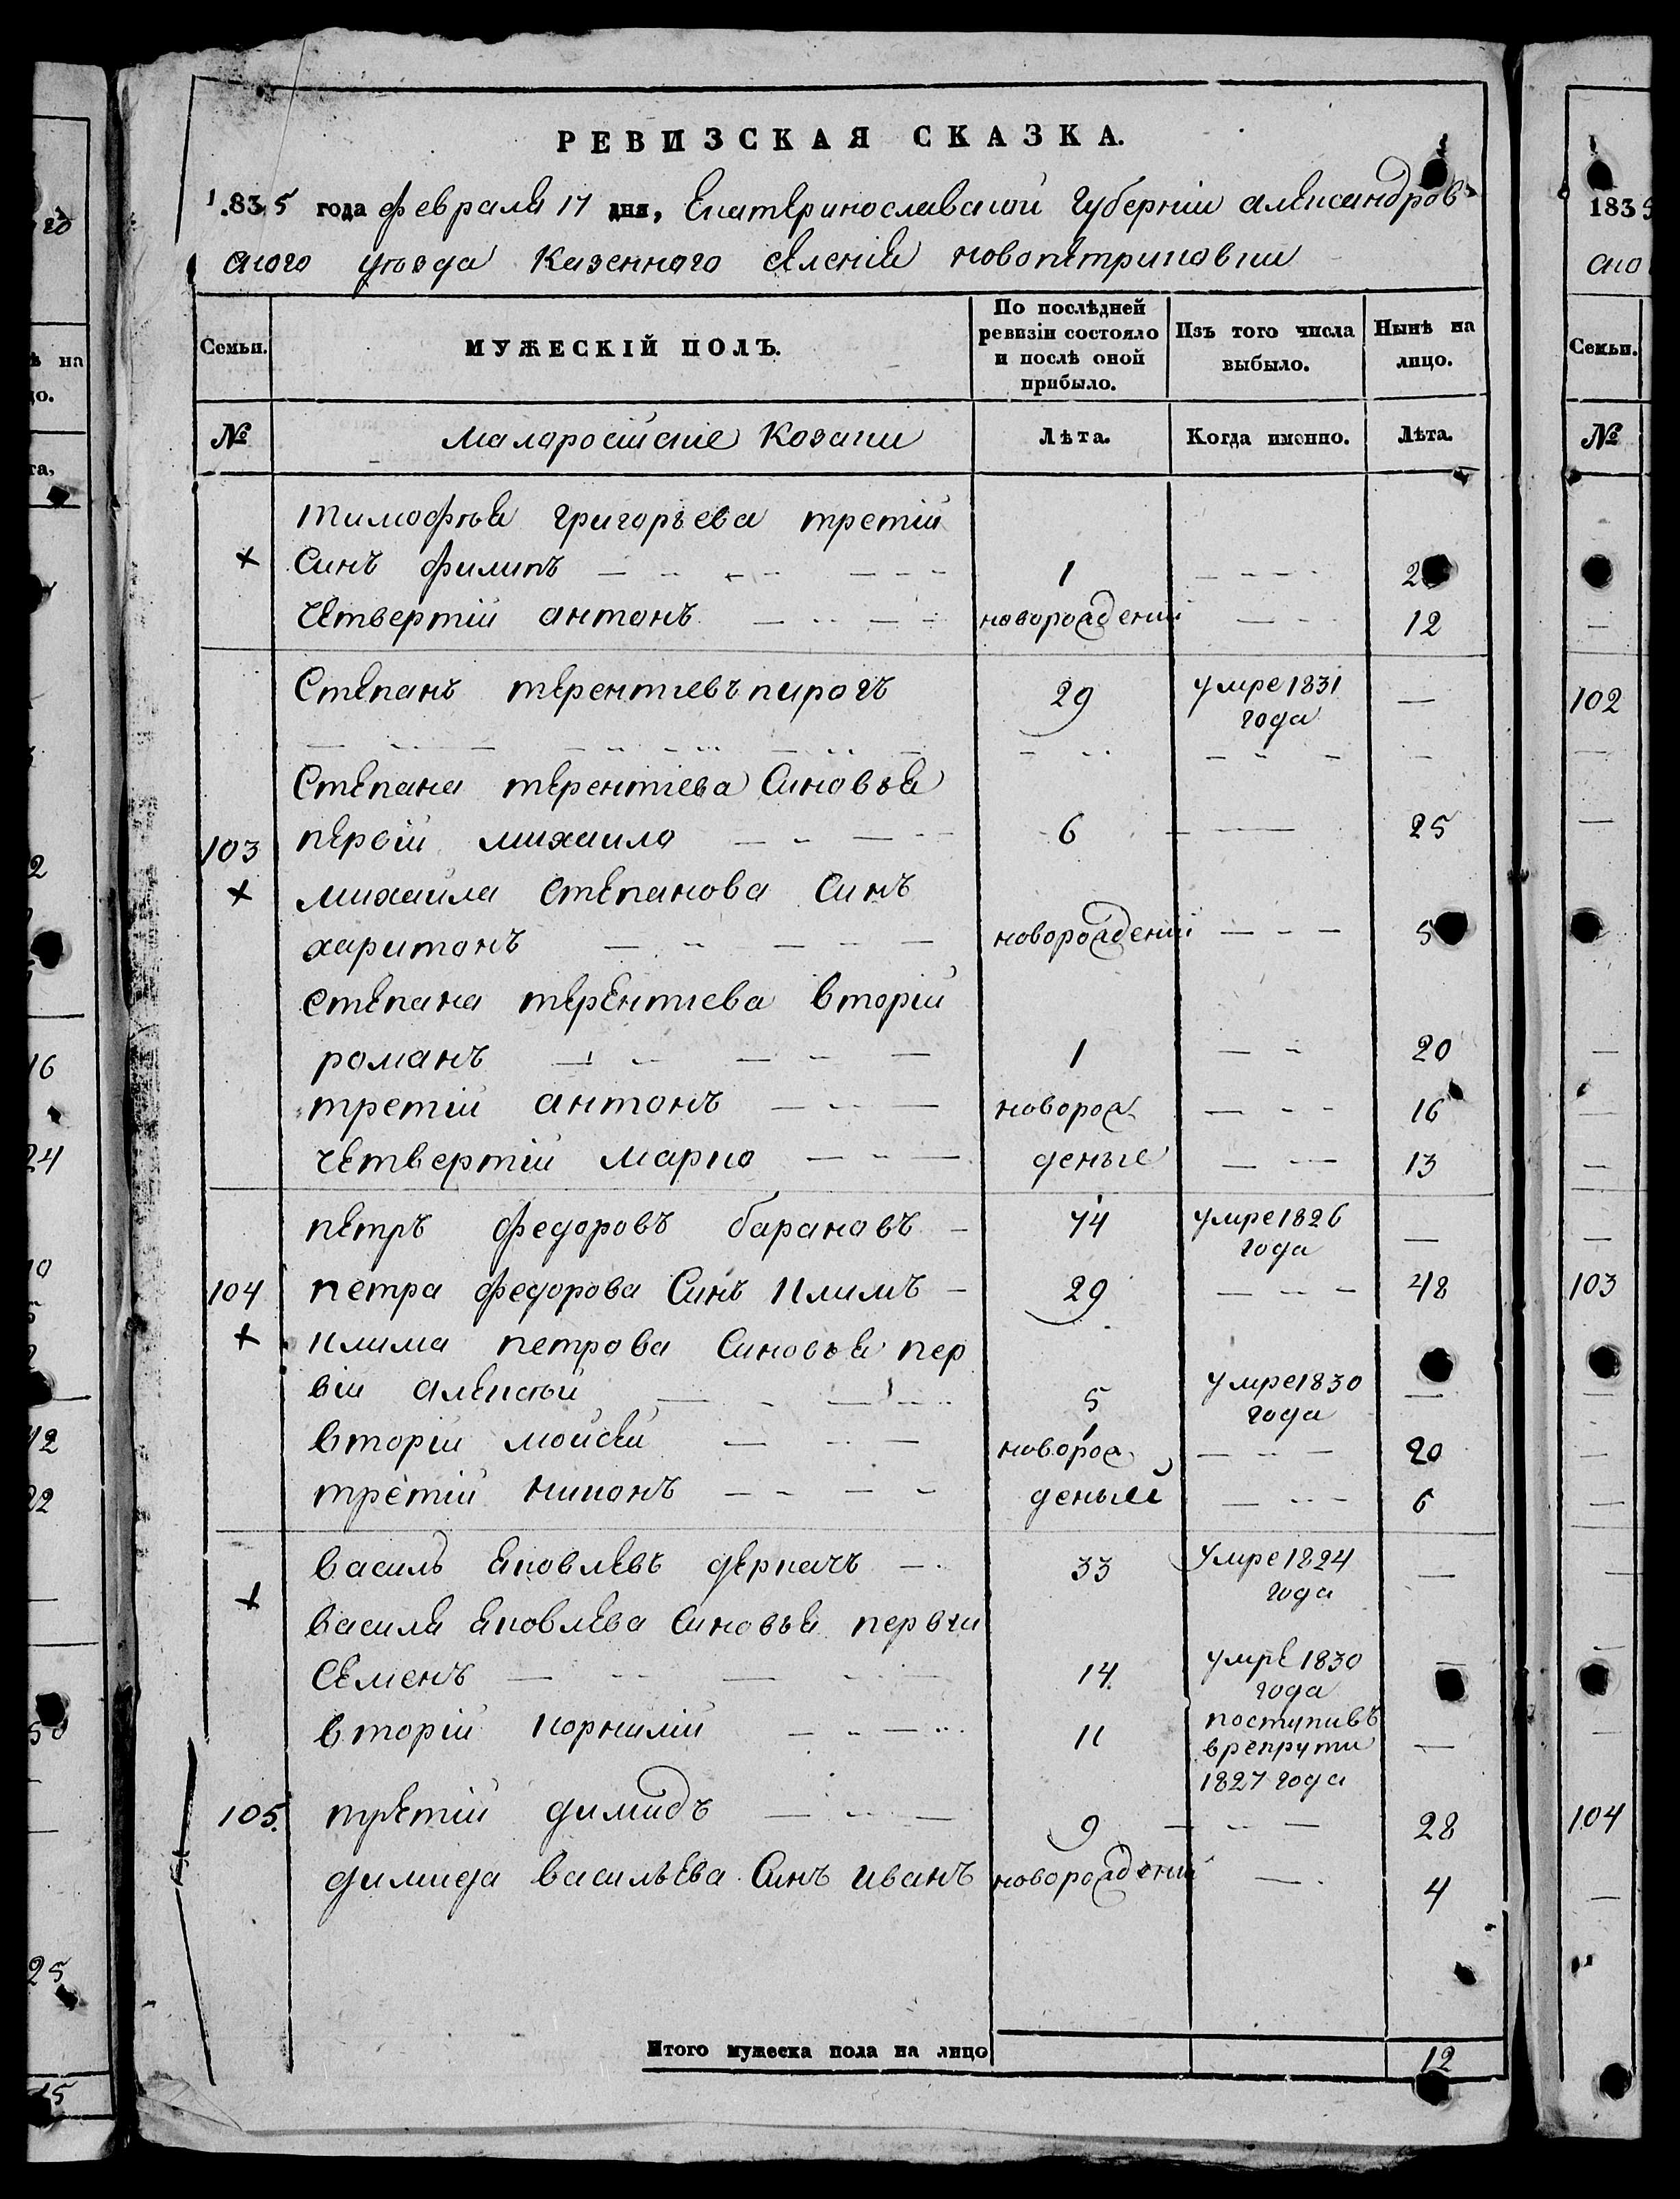 РЕВИЗСКАЯ СКАЗКА.
1835 года февраля 17 дня, Екатеринославской губернии александров
ского уѣзда Казенного селения новопетриковки
Семьи. МУЖЕСКІЙ ПОЛЪ. По послѣдней ревизіи состояло и послѣ оной прибыло. Изъ того числа выбыло. Нынѣ на лицо.
№ малоросийские Козаки Лѣта. Когда именно. Лѣта.
тимофѣя григорьева третій
синъ филипъ 1
четвертій антонъ новорожденій 12
Степанъ терентіевъ пирогъ 29 умре 1831 года
Степана терентіева Синовья
103 первій михаило 6 25
михаила степанова Синъ
харитонъ новорожденій 5
степана терентіева вторій
романъ 1 20
третій антонъ новорож 16
четвертій марко деные 13
петръ федоровъ барановъ 74 умре 1826 года
104 петра федорова Синъ климъ 29 48
клима петрова Синовья пер
вій алексѣй 5 умре 1830 года
вторій мойсей новорож 20
третій никонъ деныи 6
василь яковлевъ деркачъ 33 умре 1824 года
василя яковлева Синовья первии
Семенъ 14 умре 1830 года
вторій корнилій 11 поступивъ
в рекрути
1827 года
105. третій димидъ 9 28
димида васильева Синъ иванъ новорожденій 4
Итого мужеска пола на лицо 12
183
ско
Семьи.
№
102
103
104